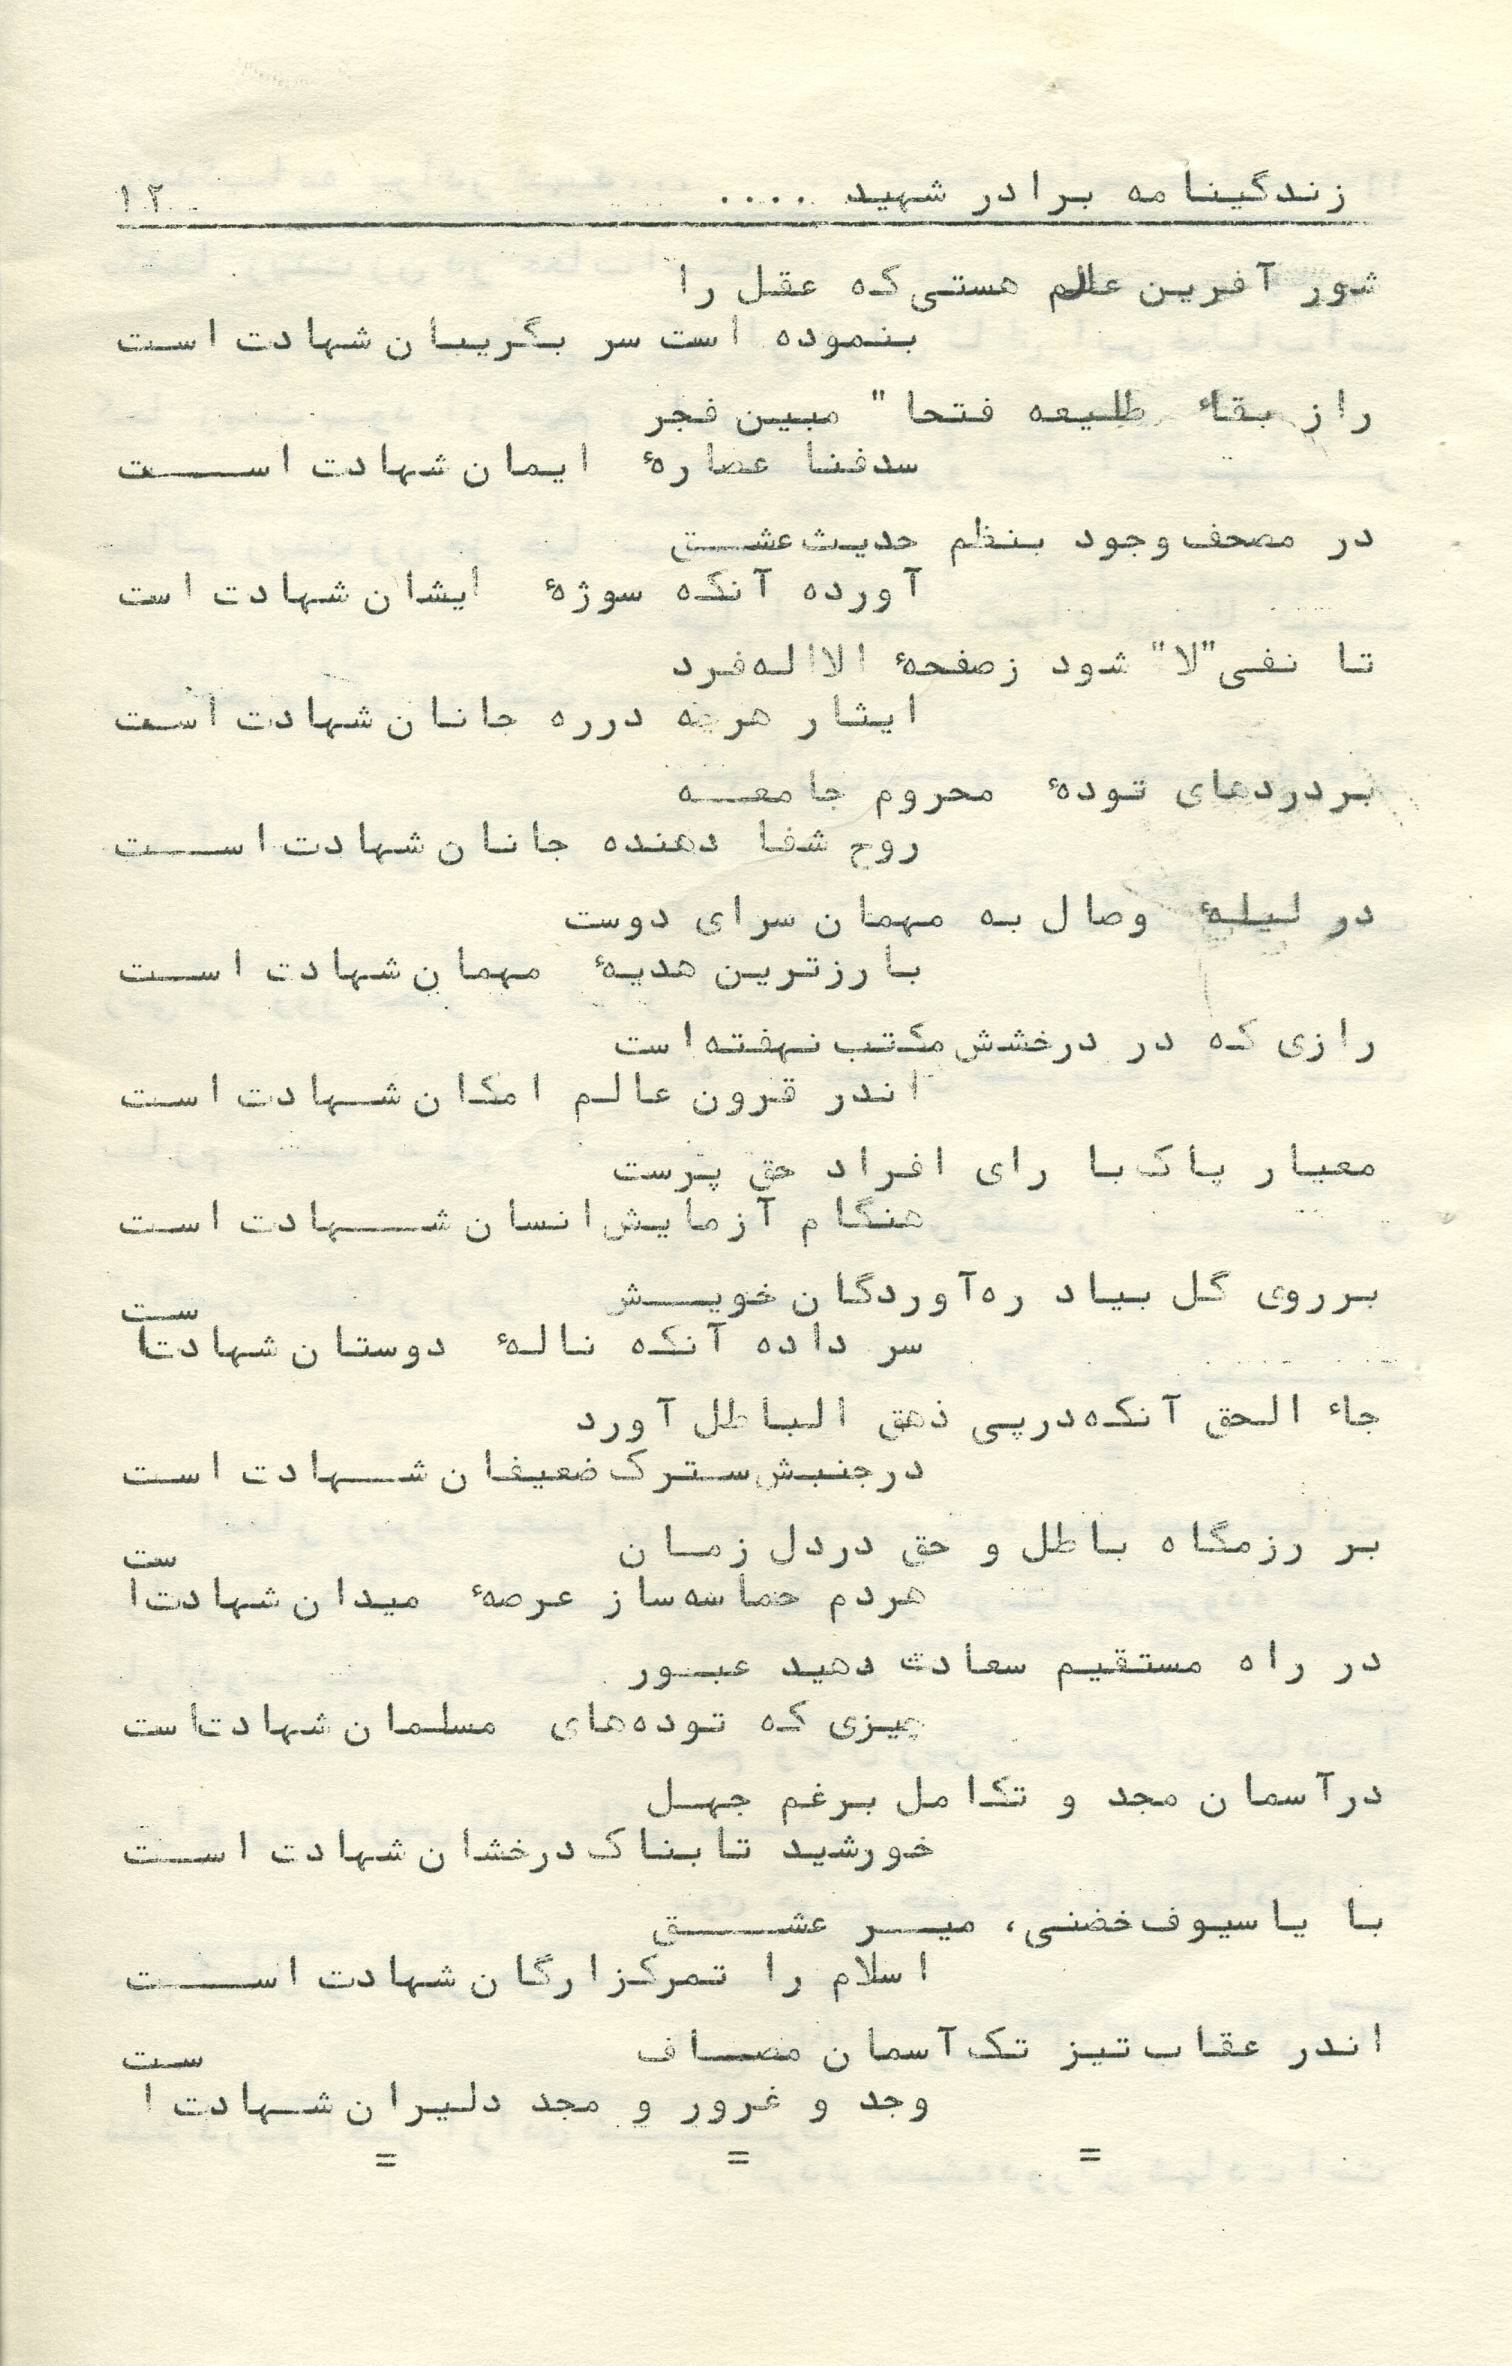 زندگینامه برادر شهید .... ۱۲
شور آفرین عالم هستی که عقل را
بنموده است سر بگریبان شهادت است
راز بقاء طلیعه فتحا" مبین فجر
سدفنا عصارهٔ ایمان شهادت است
در مصحف وجود بنظم حدیث عشق
آورده آنکه سوژهٔ ایشان شهادت است
تا نفی "لا" شود زصفحهٔ الااله فرد
ایثار هرچه درره جانان شهادت است
بردردهای تودهٔ محروم جامعه
روح شفا دهنده جانان شهادت است
در لیلهٔ وصال به مهمان سرای دوست
بارزترین هدیهٔ مهمان شهادت است
رازی که در درخشش مکتب نهفته است
اندر قرون عالم امکان شهادت است
معیار پاک با رای افراد حق پرست
هنگام آزمایش انسان شهادت است
برروی گل بیاد ره‌آوردگان خویش
سر داده آنکه نالهٔ دوستان شهادت است
جاء الحق آنکه درپی ذهق الباطل آورد
درجنبش سترک ضعیفان شهادت است
بر رزمگاه باطل و حق دردل زمان
هردم حماسه‌ساز عرصهٔ میدان شهادت است
در راه مستقیم سعادت دهید عبور
چیزی که توده‌های مسلمان شهادت است
درآسمان مجد و تکامل برغم جهل
خورشید تابناک درخشان شهادت است
با یا سیوف خضنی، میر عشق
اسلام را تمرکز ارگان شهادت است
اندر عقاب تیز تک آسمان مصاف
وجد و غرور و مجد دلیران شهادت است
= = =